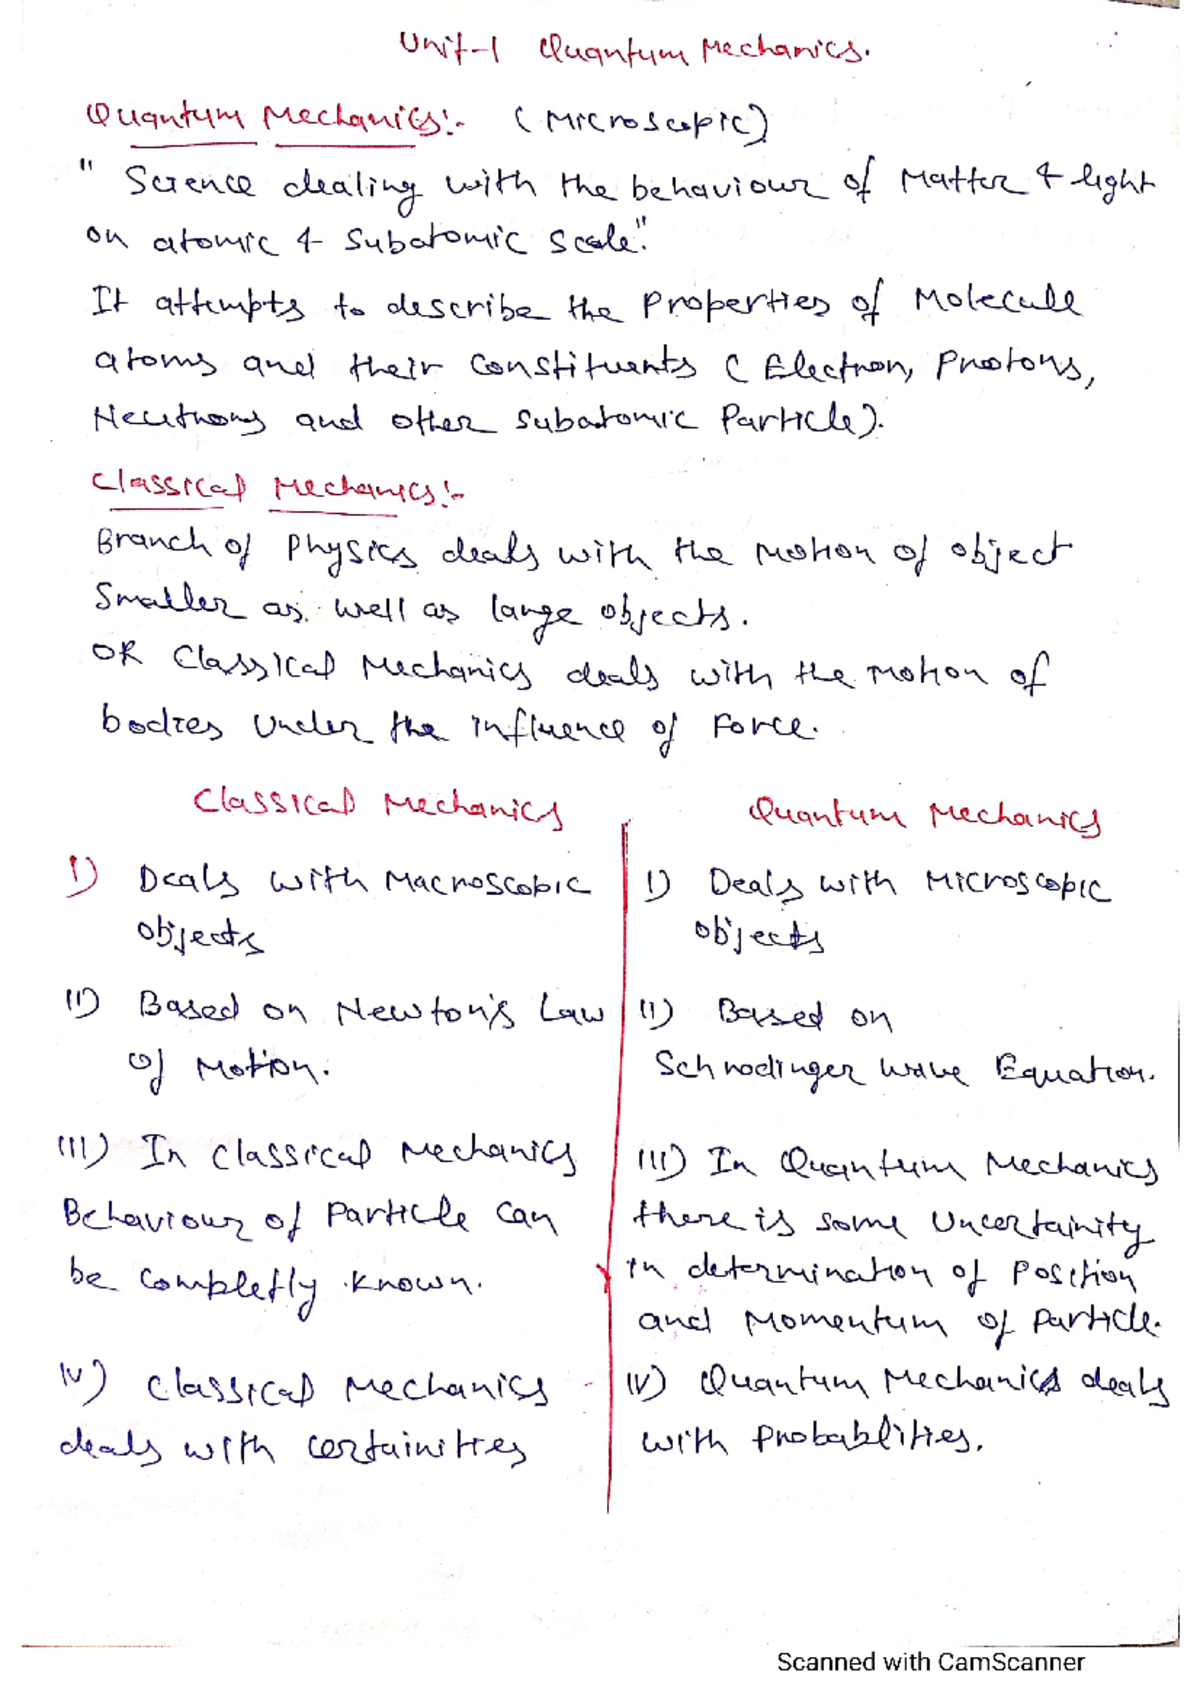 Unit-1 Quantum Mechanics.
Quantum Mechanics:- (Microscopic)
" Science dealing with the behaviour of Matter & light
on atomic & Subatomic Scale."
It attempts to describe the Properties of Molecule
atoms and their Constituents ( Electron, Protons,
Neutrons and other Subatomic Particle).
Classical Mechanics:-
Branch of Physics deals with the Motion of object
Smaller as well as large objects.
OR Classical Mechanics deals with the motion of
bodies under the influence of Force.
Classical Mechanics
Quantum Mechanics
I) Deals with Macroscopic
objects
I) Deals with Microscopic
objects
II) Based on Newton's Law
of Motion.
II) Based on
Schrodinger wave Equation.
III) In Classical Mechanics
Behaviour of Particle can
be completly known.
III) In Quantum Mechanics
there is some Uncertainity
in determination of Position
and Momentum of Particle.
IV) Classical Mechanics
deals with certainities
IV) Quantum Mechanics deals
with Probablities.
Scanned with CamScanner